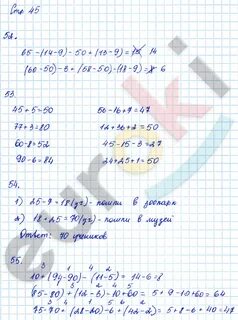 Стр 45
52.
65-(14-9)-50+(13-9)=14
(60-50)-3+(58-50)-(18-9)=6
53.
45+5=50 56-16+7=47
77+3=80 12+36+2=50
60-8=52 45-15-3=27
90-6=84 24+25+1=50
54.
1) 25-7=18(уч)-пошли в зоопарк
2) 18+25=70(уч)-пошли в музей
Ответ: 70 учеников
55.
3 1 4 2
10+(94-90)-(11-5)=14-6=8
(85-80)+(12-3)-10+60=5+9-10+60=64
75-70+(28-20)-6+(42-2)=5+8-6+40=47